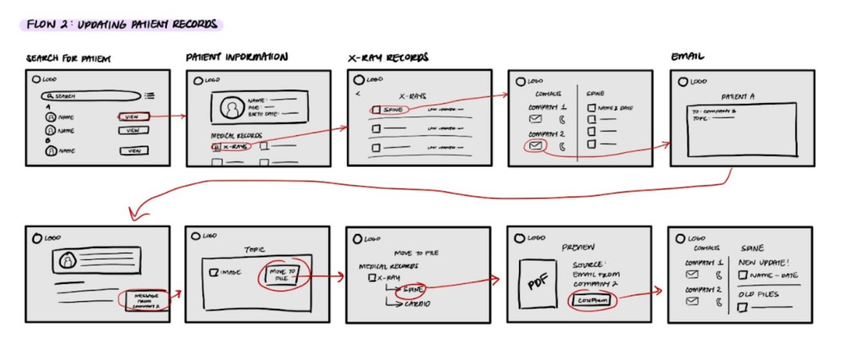 FLOW 2: UPDATING PATIENT RECORDS
SEARCH FOR PATIENT
LOGO
SEARCH
A
NAME VIEW
NAME VIEW
B
NAME VIEW
PATIENT INFORMATION
LOGO
NAME:
AGE:
BIRTH DATE:
MEDICAL RECORDS
X-RAYS
X-RAY RECORDS
LOGO
< X-RAYS
SPINE
LOGO
CONTACTS
COMPANY 1
COMPANY 2
SPINE
NAME & DATE
EMAIL
LOGO
PATIENT A
TO: COMPANY 2
TOPIC:
LOGO
MESSAGE
FROM
COMPANY 2
LOGO
TOPIC
IMAGE
MOVE TO
FILE
LOGO
MOVE TO FILE
MEDICAL RECORDS
X-RAY
SPINE
CARDIO
LOGO
PREVIEW
PDF
SOURCE:
EMAIL FROM
COMPANY 2
CONFIRM
LOGO
CONTACTS
COMPANY 1
COMPANY 2
SPINE
NEW UPDATE!
NAME - DATE
OLD FILES